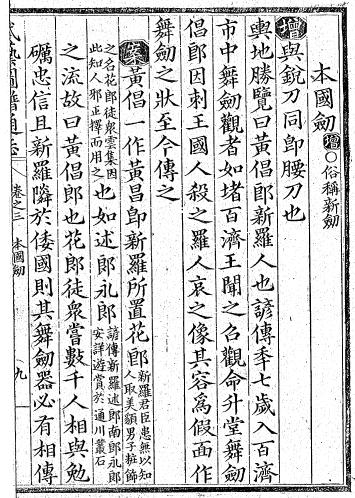 本國劒 增○俗稱新劒
增與銳刀同卽腰刀也
輿地勝覽曰黃倡郞新羅人也諺傳秊七歲入百濟
市中舞劒觀者如堵百濟王聞之召觀命升堂舞劒
倡郞因刺王國人殺之羅人哀之像其容爲假面作
舞劒之狀至今傳之
案黃倡一作黃昌卽新羅所置花郞 新羅君臣患無以知人取美貌男子粧飾
之名花郞徒衆雲集因此知人邪正擇而用之 也如述郞永郞 諺傳新羅述郞南郞永郞安詳遊賞於通川叢石
之流故曰黃倡郞也花郞徒衆嘗數千人相與勉
礪忠信且新羅隣於倭國則其舞劒器必有相傳
卷之三 本國劒 九